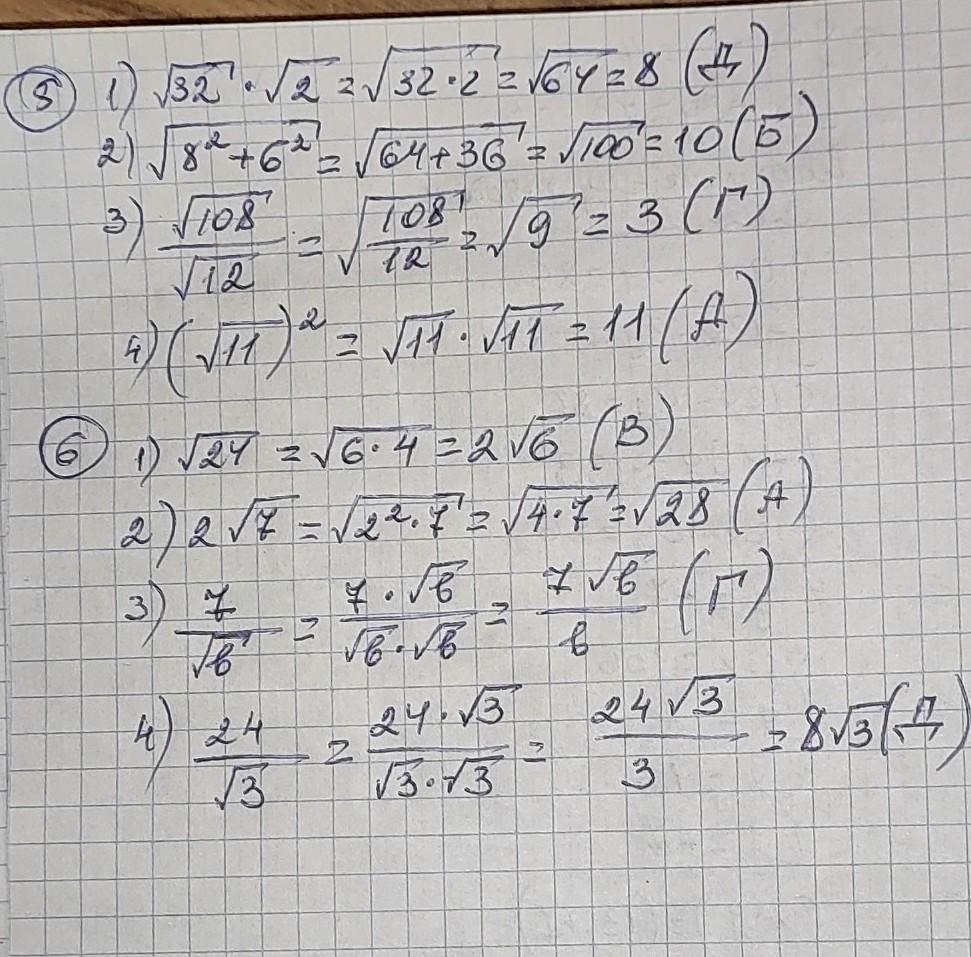 5 1) √32 · √2 = √32·2 = √64 = 8 (Д)
2) √8²+6² = √64+36 = √100 = 10 (Б)
3) √108/√12 = √108/12 = √9 = 3 (Г)
4) (√11)² = √11 · √11 = 11 (А)
6 1) √24 = √6·4 = 2√6 (В)
2) 2√7 = √2²·7 = √4·7 = √28 (А)
3) 7/√в = 7·√в/√в·√в = 7√в/в (Г)
4) 24/√3 = 24·√3/√3·√3 = 24√3/3 = 8√3 (Д)